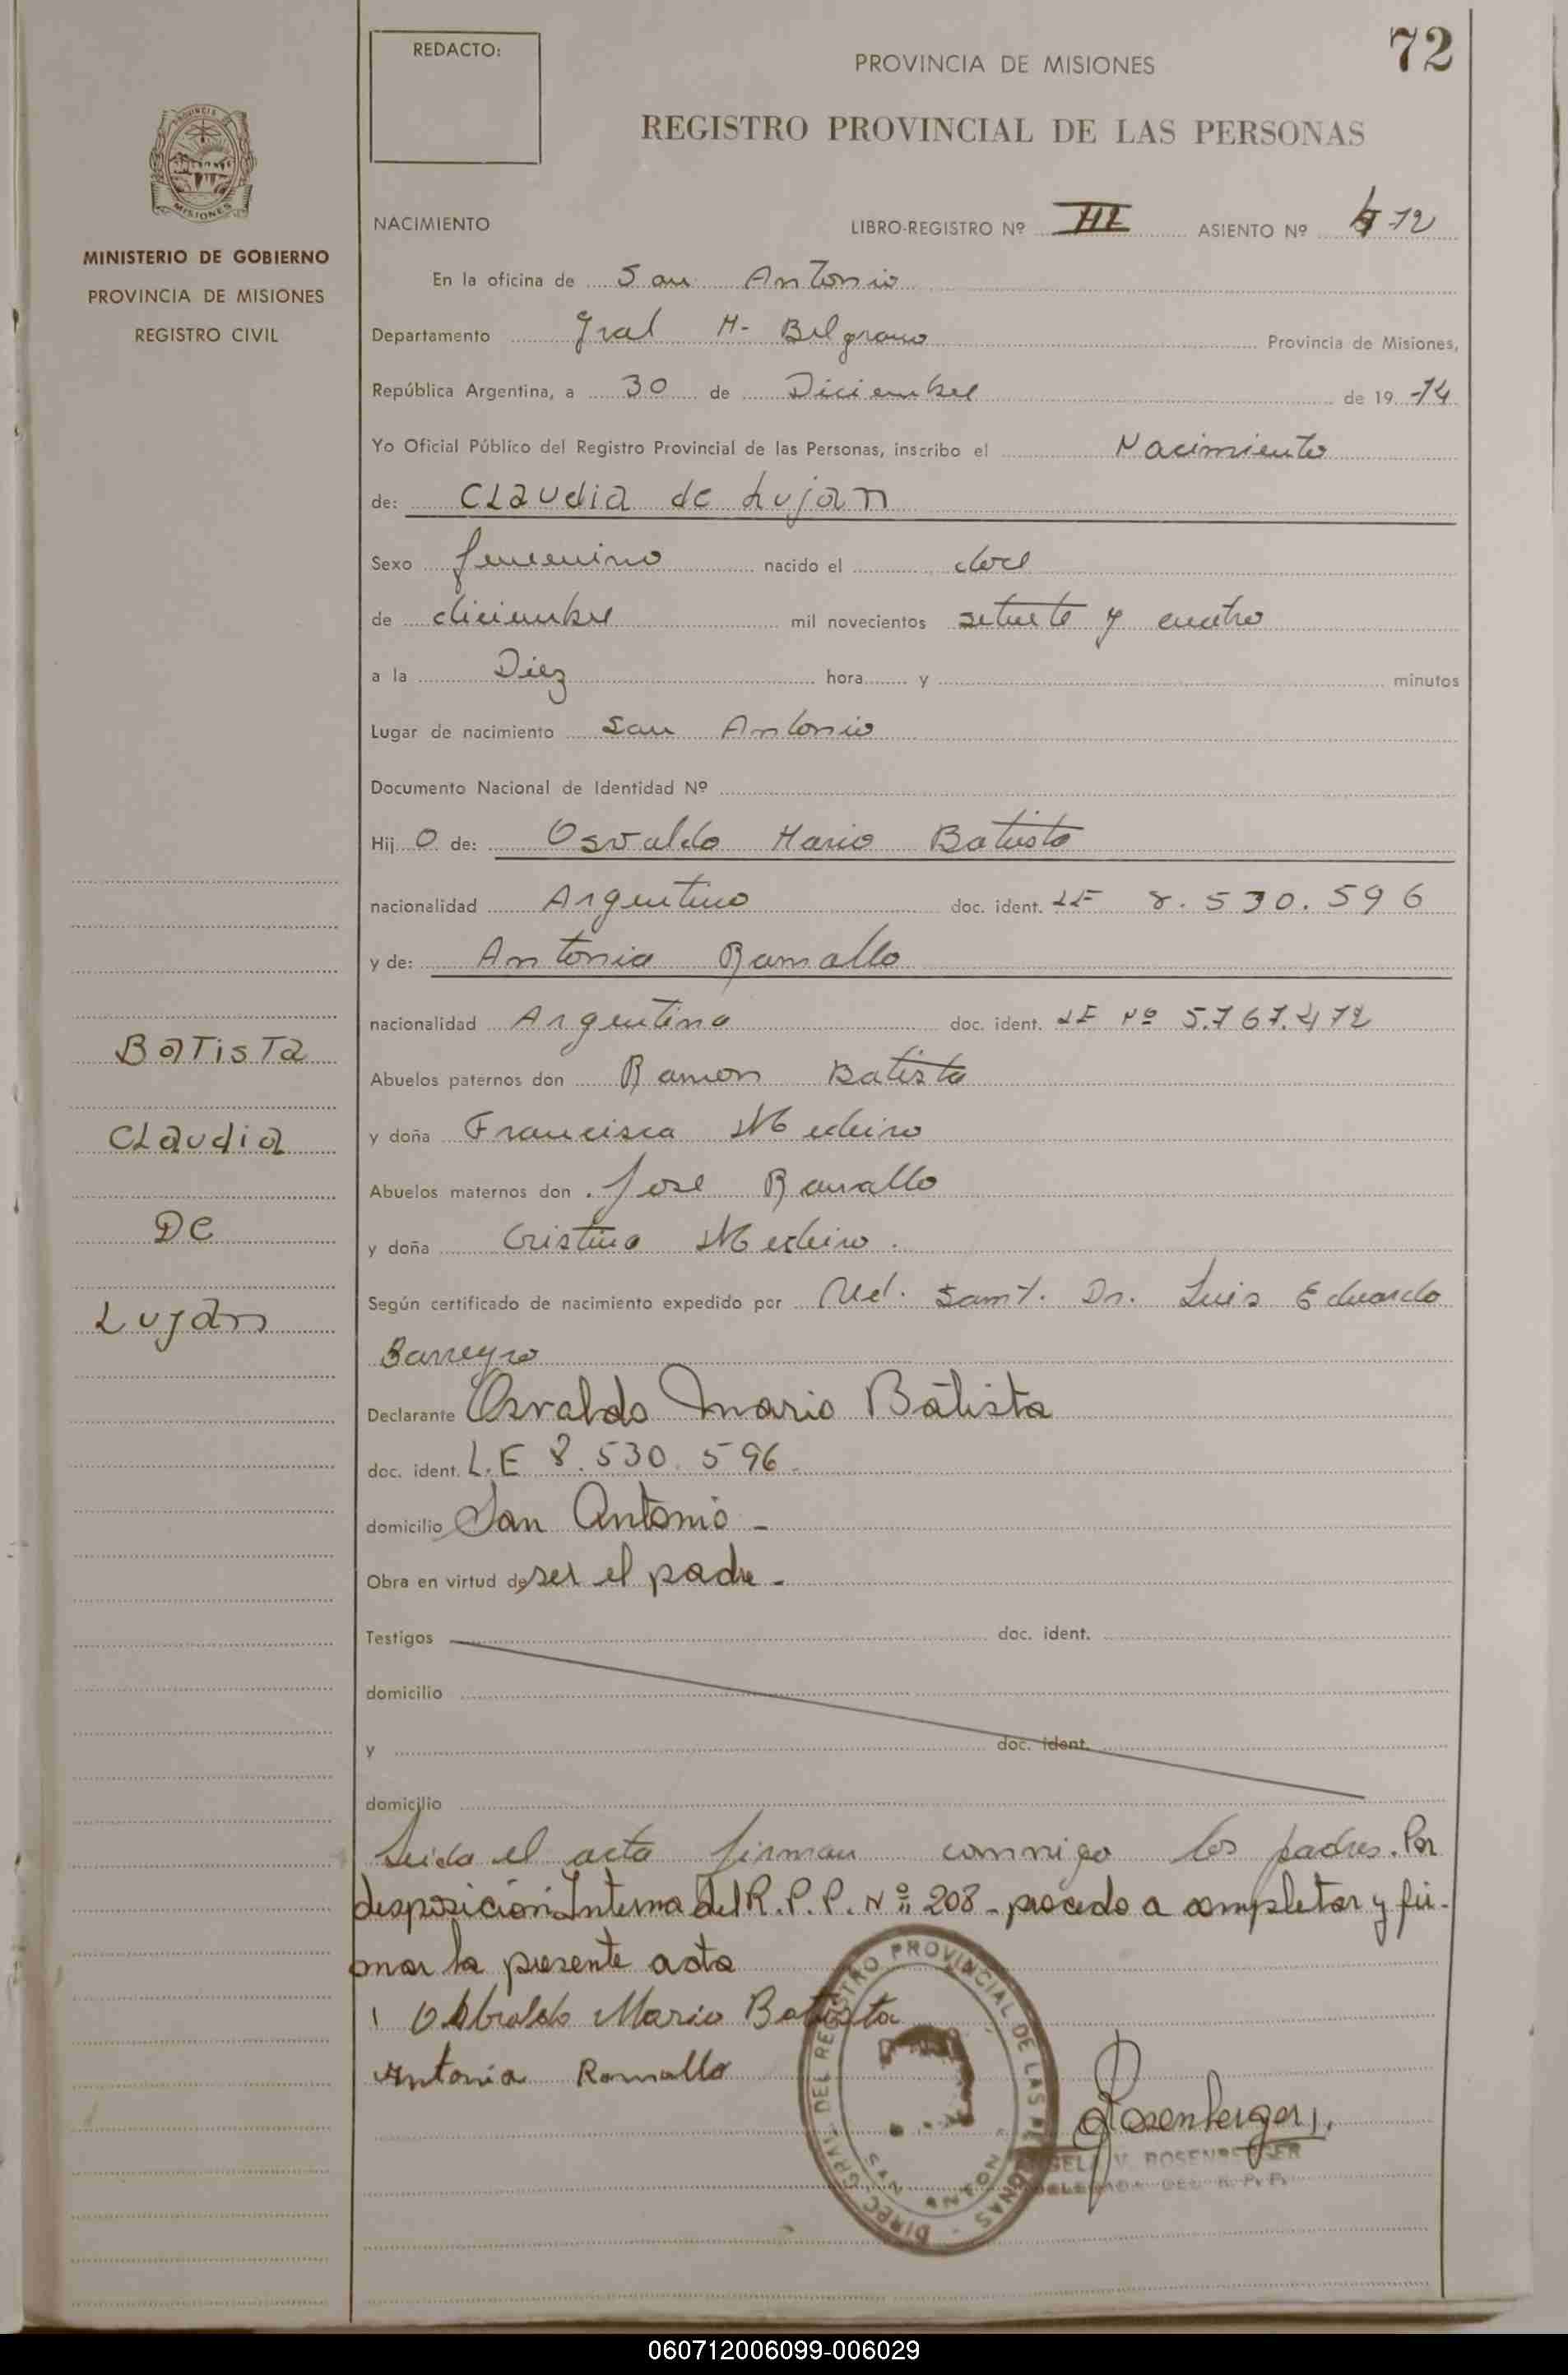 72
REDACTO:
PROVINCIA DE MISIONES
REGISTRO PROVINCIAL DE LAS PERSONAS
MISIONES
MINISTERIO DE GOBIERNO
PROVINCIA DE MISIONES
REGISTRO CIVIL
NACIMIENTO LIBRO-REGISTRO Nº III ASIENTO Nº 72
En la oficina de San Antonio
Departamento Gral M- Belgrano Provincia de Misiones,
República Argentina, a 30 de Diciembre de 19 74
Yo Oficial Público del Registro Provincial de las Personas, inscribo el Nacimiento
de: Claudia de Lujan
Sexo femenino nacido el doce
de diciembre mil novecientos setenta y cuatro
a la Diez hora y minutos
Lugar de nacimiento San Antonio
Documento Nacional de Identidad Nº
Hij o de: Osvaldo Mario Batista
nacionalidad Argentino doc. ident. LE 8.530.596
y de: Antonia Ramallo
nacionalidad Argentina doc. ident. LE Nº 5.767.472
Abuelos paternos don Ramon Batista
y doña Francisca Medeiro
Abuelos maternos don Jose Ramallo
y doña Cristina Medeiro.
Según certificado de nacimiento expedido por Ud. Sanit. Dr. Luis Eduardo
Barreyro
Declarante Osvaldo Mario Batista
doc. ident. L.E 8.530.596
domicilio San Antonio -
Obra en virtud de ser el padre -
Testigos doc. ident.
domicilio
y doc. ident.
domicilio
Leida el acta firman conmigo los padres. Por
disposición Interna del R.P.P. Nº 208 - procedo a completar y fir-
mar la presente acta
Osbaldo Mario Batista
Antonia Ramallo
Rosenberger
V. ROSENBERGER
DELEGADA DEL R.P.P.
DIREC. GRAL. DEL REGISTRO PROVINCIAL DE LAS PERSONAS
SAN ANTONIO
Batista
Claudia
De
Lujan
060712006099-006029